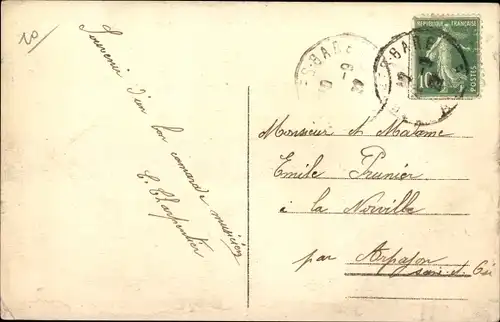 20
Souvenir d'un bon camarade musicien
C. Charpentier
RÉPUBLIQUE FRANÇAISE
10
POSTES
Monsieur et Madame
Emile Prunier
à la Norville
par Arpajon
Seine et Oise